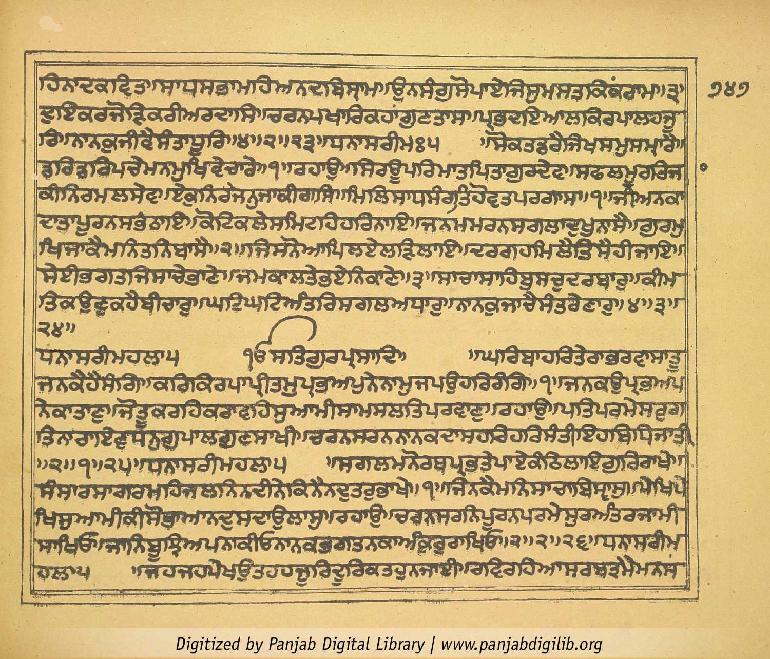 ਹਿਨਾਦਕਵਿਤਾ॥ਸਾਧਸਭਾਮਹਿਅਨਦਬਿਸ੍ਰਾਮਾ॥ਉਨਸੰਗੁਸੋਪਾਏਜਿਸੁਮਸਤਕਿਕਰਾਮਾ॥੩
੭੪੭
ਦੁਇਕਰਜੋੜਿਕਰੀਅਰਦਾਸਿ॥ਚਰਨਪਖਾਰਿਕਹਾਂਗੁਣਤਾਸ॥ਪ੍ਰਭਦਇਆਲਕਿਰਪਾਲਹਜੂ
ਰਿ॥ਨਾਨਕੁਜੀਵੈਸੰਤਾਧੂਰਿ॥੪॥੨॥੨੩॥ਧਨਾਸਰੀਮਃ੫ ॥ਸੋਕਤਡਰੈਜਿਖਸਮੁਸਮ੍ਹਾਰੈ॥
ਡਰਿਡਰਿਪਚੇਮਨਮੁਖਵੇਚਾਰੇ॥੧॥ਰਹਾਉ॥ਸਿਰਊਪਰਿਮਾਤਪਿਤਾਗੁਰਦੇਵ॥ਸਫਲਮੂਰਤਿਜਾ
ਕੀਨਿਰਮਲਸੇਵ॥ਏਕੁਨਿਰੰਜਨੁਜਾਕੀਰਾਸਿ॥ਮਿਲਿਸਾਧਸੰਗਤਿਹੋਵਤਪਰਗਾਸ॥੧॥ਜੀਅਨਕਾ
ਦਾਤਾਪੂਰਨਸਭਠਾਇ॥ਕੋਟਿਕਲੇਸਮਿਟਹਿਹਰਿਨਾਇ॥ਜਨਮਮਰਨਸਗਲਾਦੁਖੁਨਾਸੈ॥ਗੁਰਮੁ
ਖਿਜਾਕੈਮਨਿਤਨਿਬਾਸੈ॥੨॥ਜਿਸਨੋਆਪਿਲਏਲੜਿਲਾਇ॥ਦਰਗਹਮਿਲੈਤਿਸੈਹੀਜਾਇ॥
ਸੇਈਭਗਤਜਿਸਾਚੇਭਾਣੇ॥ਜਮਕਾਲਤੇਭਏਨਿਕਾਣੇ॥੩॥ਸਾਚਾਸਾਹਿਬੁਸਚੁਦਰਬਾਰੁ॥ਕੀਮ
ਤਿਕਉਣੁਕਹੈਬੀਚਾਰੁ॥ਘਟਿਘਟਿਅੰਤਰਿਸਗਲਅਧਾਰੁ॥ਨਾਨਕੁਜਾਚੈਸੰਤਰੇਣਾਰੁ॥੪॥੩॥
੨੪॥
ਧਨਾਸਰੀਮਹਲਾ੫ ੴਸਤਿਗੁਰਪ੍ਰਸਾਦਿ॥ ॥ਘਰਿਬਾਹਰਿਤੇਰਾਭਰਵਾਸਾਤੂ
ਜਨਕੈਹੈਸੰਗਿ॥ਕਰਿਕਿਰਪਾਪ੍ਰੀਤਮਪ੍ਰਭਅਪੁਨੇਨਾਮੁਜਪਉਹਰਿਰੰਗਿ॥੧॥ਜਨਕਉਪ੍ਰਭਅਪ
ਨੇਕਾਤਾਣੁ॥ਜੋਤੂਕਰਹਿਕਰਾਵਹਿਸੁਆਮੀਸਾਮਸਲਤਿਪਰਵਾਣੁ॥ਰਹਾਉ॥ਪਤਿਪਰਮੇਸਰੁਗ
ਤਿਨਾਰਾਇਣੁਧਨੁਗੁਪਾਲਗੁਣਸਾਖੀ॥ਚਰਨਸਰਨਨਾਨਕਦਾਸਹਰਿਹਰਿਸੰਤੀਇਹਬਿਧਿਜਾਤੀ
॥੨॥੧॥੨੫॥ਧਨਾਸਰੀਮਹਲਾ੫ ॥ਸਗਲਮਨੋਰਥਪ੍ਰਭਤੇਪਾਏਕੰਠਿਲਾਇਗੁਰਿਰਾਖੇ॥
ਸੰਸਾਰਸਾਗਰਮਹਿਜਲਨਿਨਦੀਨੇਕਿਨੈਨਦੁਤਰੁਭਾਖੇ॥੧॥ਜਿਨਕੈਮਨਿਸਾਚਾਬਿਸ੍ਵਾਸੁ॥ਪੇਖਿਪੇ
ਖਿਸੁਆਮੀਕੀਸੋਭਾਆਨਦੁਸਦਾਉਲਾਸੁ॥ਰਹਾਉ॥ਚਰਨਸਰਨਿਪੂਰਨਪਰਮੇਸੁਰਅੰਤਰਜਾਮੀ
ਸਾਖਿਓ॥ਜਾਨਿਬੂਝਿਅਪਨਾਕੀਓਨਾਨਕਭਗਤਨਕਾਅੰਕੁਰੁਰਾਖਿਓ॥੨॥੨॥੨੬॥ਧਨਾਸਰੀਮ
ਹਲਾ੫ ॥ਜਹਜਹਪੇਖਉਤਹਹਜੂਰਿਦੂਰਿਕਤਹੁਨਜਾਈ॥ਰਵਿਰਹਿਆਸਰਬਤ੍ਰਮੈਮਨਸ
Digitized by Panjab Digital Library | www.panjabdigilib.org